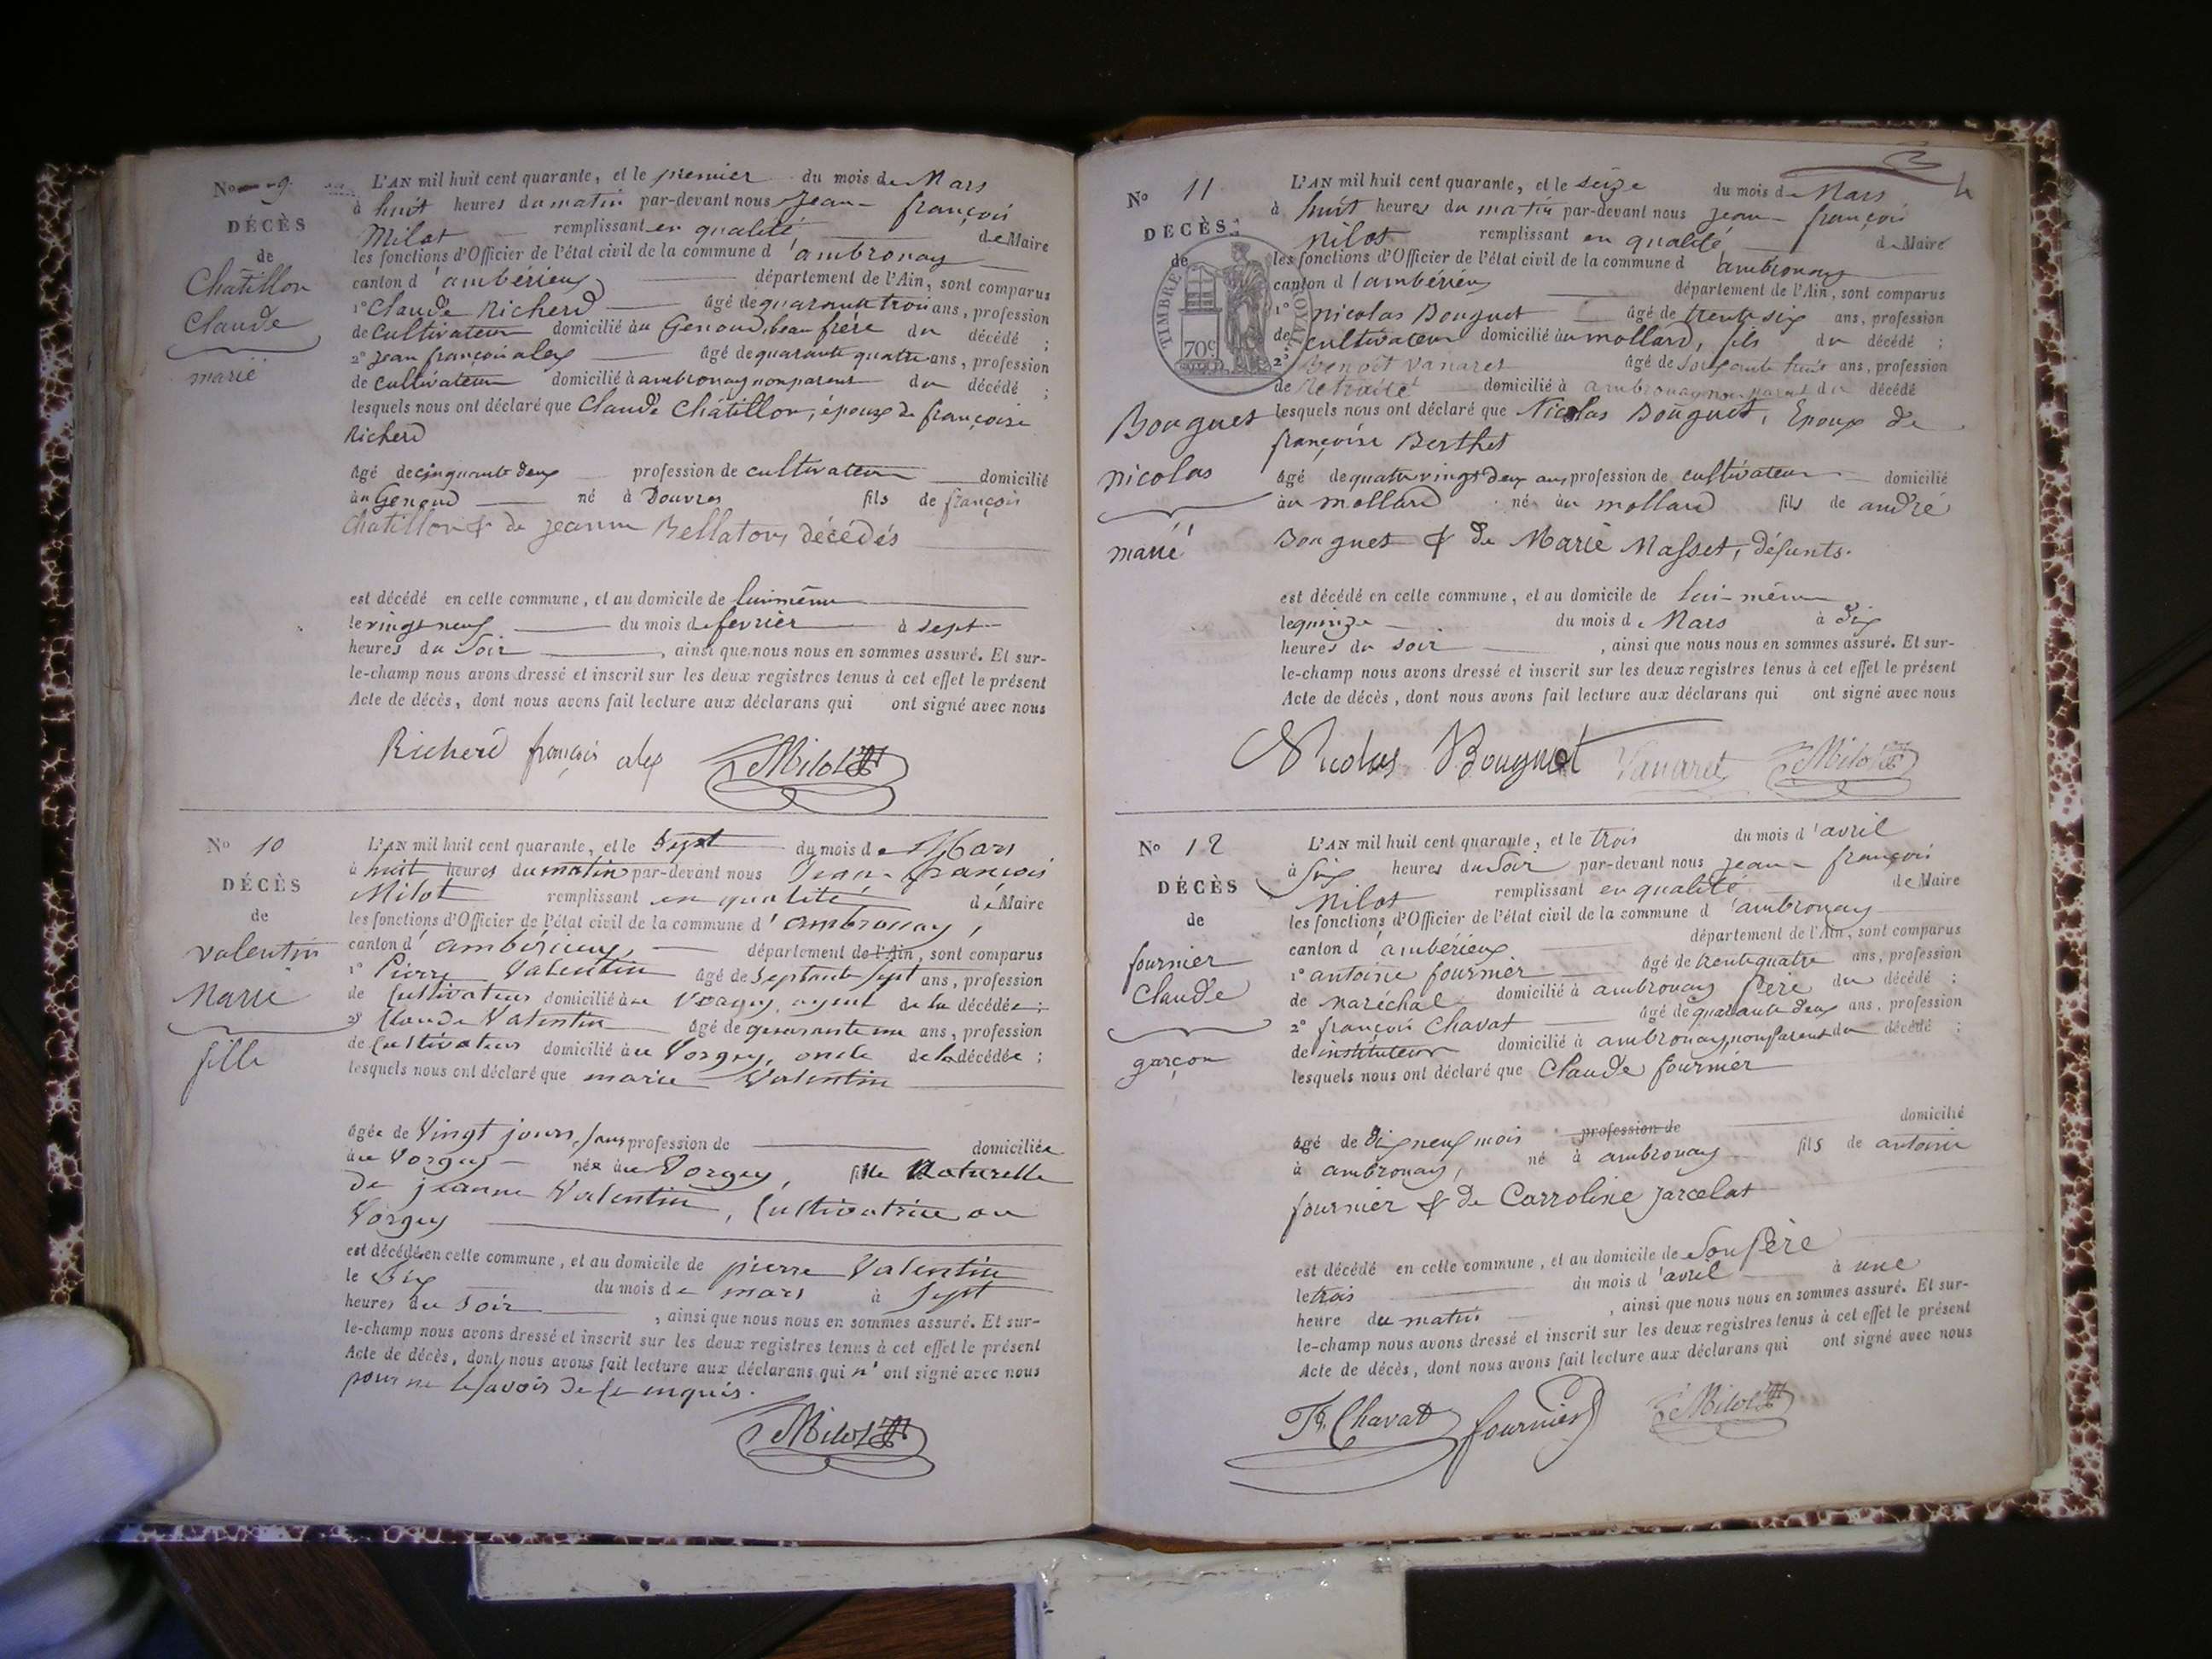 No 9
DÉCÈS
de
Chatillon
Claude
marié
L'AN mil huit cent quarante, et le premier du mois de Mars
à huit heures du matin par-devant nous Jean-françois
Milot remplissant en qualité de Maire
les fonctions d'Officier de l'état civil de la commune d'ambronay
canton d'ambérieux département de l'Ain, sont comparus
1° Claude Richerd âgé de quarante trois ans, profession
de cultivateur domicilié au Genoud, beau frère du décédé ;
2° jean françois alex âgé de quarante quatre ans, profession
de cultivateur domicilié à ambronay non parent du décédé ;
lesquels nous ont déclaré que Claude Châtillon, époux de françoise
Richerd
âgé de cinquante deux profession de cultivateur domicilié
au Genoud né à Douvres fils de françois
Chatillon & de jeanne Bellaton, décédés
est décédé en cette commune, et au domicile de lui même
le vingt neuf du mois de fevrier à sept
heures du soir, ainsi que nous nous en sommes assuré. Et sur-
le-champ nous avons dressé et inscrit sur les deux registres tenus à cet effet le présent
Acte de décès, dont nous avons fait lecture aux déclarans qui ont signé avec nous
Richerd françois alex Milot
No 10
DÉCÈS
de
valentin
Marie
fille
L'AN mil huit cent quarante, et le Sept du mois de Mars
à huit heures du matin par-devant nous Jean-françois
Milot remplissant en qualité de Maire
les fonctions d'Officier de l'état civil de la commune d'ambronay,
canton d'ambérieux, département de l'Ain, sont comparus
1° Pierre Valentin âgé de Septante Sept ans, profession
de Cultivateur domicilié au Vorgey, ayeul de la décédée ;
2° Claude Valentin âgé de quarante un ans, profession
de Cultivateur domicilié au Vorgey, oncle de la décédée ;
lesquels nous ont déclaré que marie Valentin
âgée de Vingt jours, sans profession de domiciliée
au Vorgey née au Vorgey, fille Naturelle
de jeanne Valentin, Cultivatrice au
Vorgey
est décédée en cette commune, et au domicile de pierre Valentin
le Six du mois de mars à Sept
heures du Soir, ainsi que nous nous en sommes assuré. Et sur-
le-champ nous avons dressé et inscrit sur les deux registres tenus à cet effet le présent
Acte de décès, dont nous avons fait lecture aux déclarans qui n'ont signé avec nous
pour ne le savoir de ce enquis.
Milot
No 11
DÉCÈS
de
TIMBRE ROYAL
70c
Bouguet
nicolas
marié
L'AN mil huit cent quarante, et le seize du mois de Mars
à huit heures du matin par-devant nous jean-françois
Milot remplissant en qualité de Maire
les fonctions d'Officier de l'état civil de la commune d'ambronay
canton d'ambérieux département de l'Ain, sont comparus
1° nicolas Bouguet âgé de trente six ans, profession
de cultivateur domicilié au mollard, fils du décédé ;
2° Benoit Vanaret âgé de soixante huit ans, profession
de Retraité domicilié à ambronay non parent du décédé
lesquels nous ont déclaré que Nicolas Bouguet, Epoux de
françoise Berthet
âgé de quatre vingt deux ans profession de cultivateur domicilié
au mollard né au mollard fils de andré
Bouguet & de Marie Masset, défunts.
est décédé en cette commune, et au domicile de lui-même
le quinze du mois de Mars à dix
heures du soir, ainsi que nous nous en sommes assuré. Et sur-
le-champ nous avons dressé et inscrit sur les deux registres tenus à cet effet le présent
Acte de décès, dont nous avons fait lecture aux déclarans qui ont signé avec nous
Nicolas Bouguet Vanaret Milot
No 12
DÉCÈS
de
fournier
Claude
garçon
L'AN mil huit cent quarante, et le trois du mois d'avril
à Six heures du Soir par-devant nous jean-françois
Milot remplissant en qualité de Maire
les fonctions d'Officier de l'état civil de la commune d'ambronay
canton d'ambérieux département de l'Ain, sont comparus
1° antoine fournier âgé de trente quatre ans, profession
de maréchal domicilié à ambronay père du décédé ;
2° françois Chavat âgé de quarante deux ans, profession
de instituteur domicilié à ambronay, non parent du décédé ;
lesquels nous ont déclaré que Claude fournier
âgé de dix neuf mois profession de domicilié
à ambronay, né à ambronay fils de antoine
fournier & de Carroline jarcelat
est décédé en cette commune, et au domicile de Son père
le trois du mois d'avril à une
heure du matin, ainsi que nous nous en sommes assuré. Et sur-
le-champ nous avons dressé et inscrit sur les deux registres tenus à cet effet le présent
Acte de décès, dont nous avons fait lecture aux déclarans qui ont signé avec nous
Fs Chavat fournier Milot